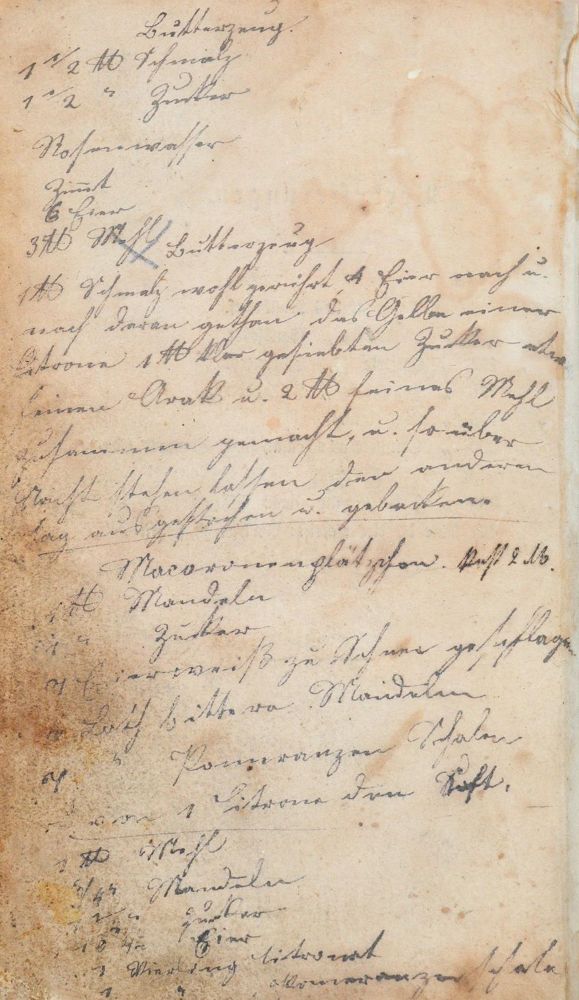 Butterzeug.
1 1/2 ℔ Schmalz
1 1/2 " Zucker
Rosenwasser
Zimmt
6 Eier
3 ℔ Mehl
Butterzeug
1 ℔ Schmalz wohl gerührt, 4 Eier nach u.
nach daran gethan das Gelbe einer
Citrone 1 ℔ klar gesiebten Zucker etw
feinen Arak u. 2 ℔ feines Mehl
zusammen gemacht, u. so über
Nacht stehen lassen den anderen
Tag ausgestochen u. gebacken.
Macaronenplätzchen. 2 M.
1 ℔ Mandeln
1 " Zucker
7 Eierweiß zu Schnee geschlagen
Loth bittere Mandeln
" Pomeranzen Schalen
von 1 Citrone den Saft.
1 ℔ Mehl
3/4 " Mandeln
1/2 " Zucker
Eier
1 Vierling Citronat
1 " Pomeranzenschale